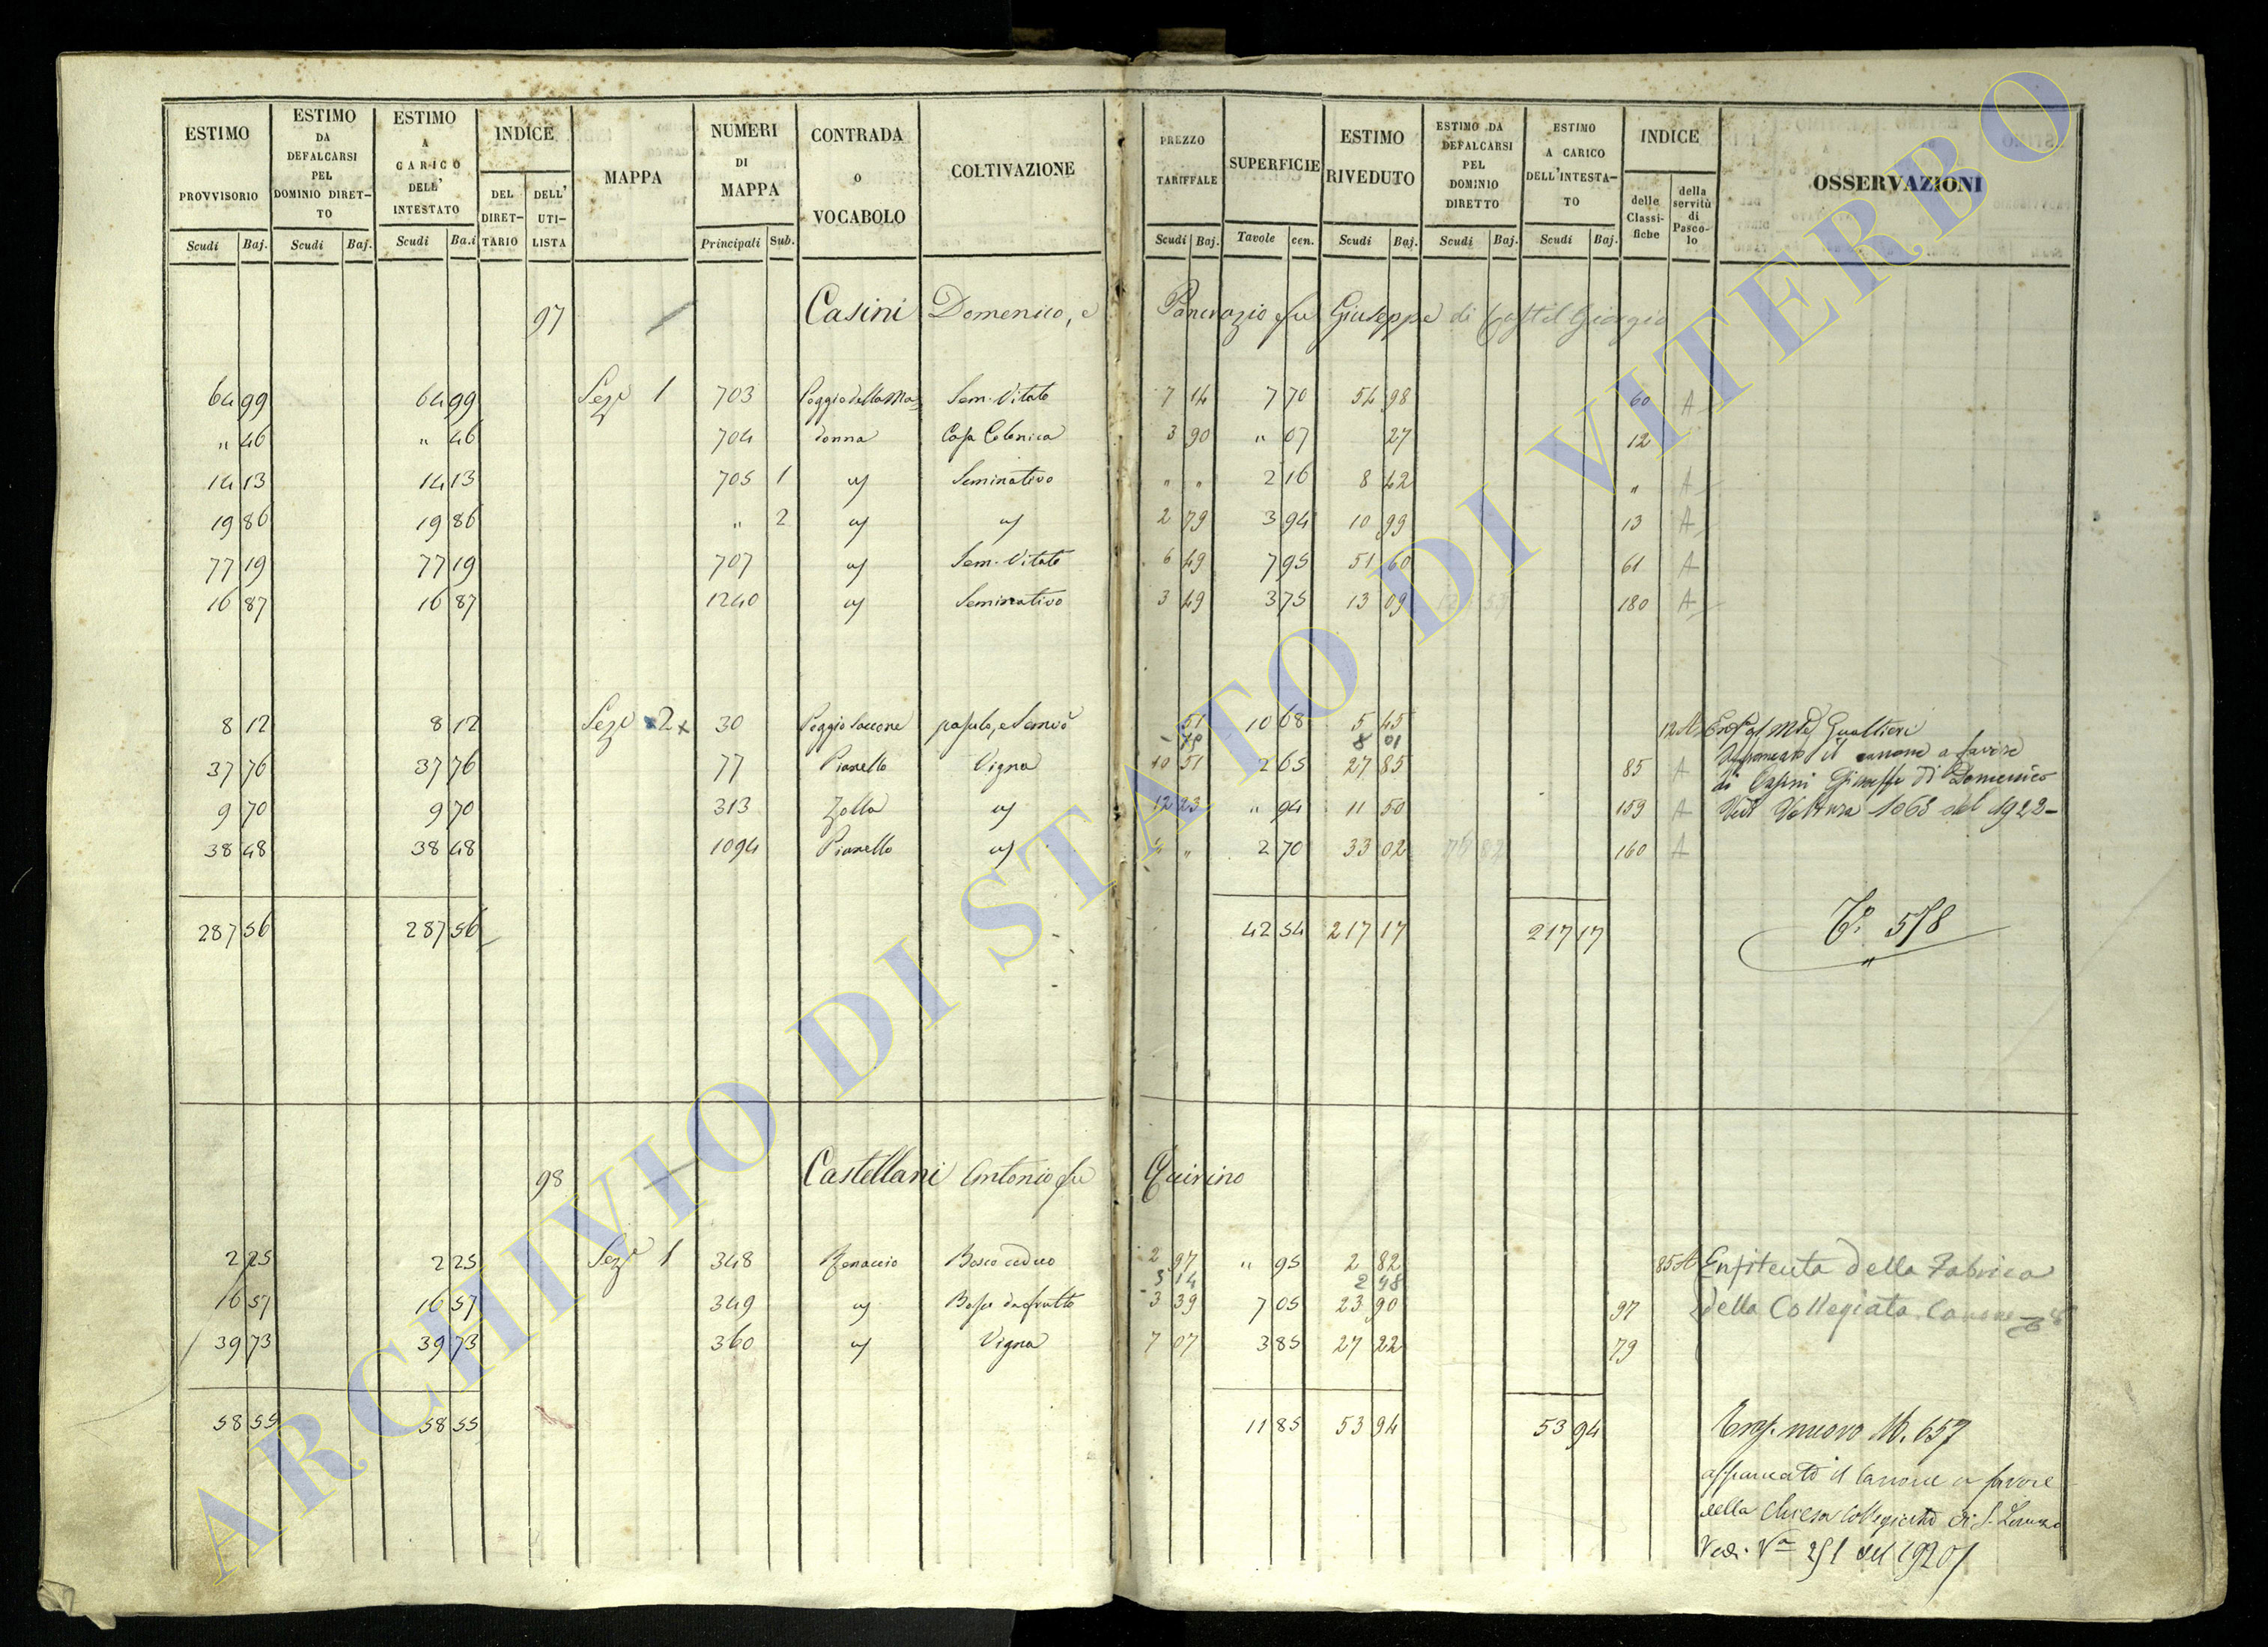 ESTIMO PROVVISORIO Scudi Baj.
ESTIMO DA DEFALCARSI PEL DOMINIO DIRETTO Scudi Baj.
ESTIMO A CARICO DELL' INTESTATO Scudi Ba.i
INDICE DEL DIRETTARIO DELL' UTILISTA
MAPPA
NUMERI DI MAPPA Principali Sub.
CONTRADA o VOCABOLO
COLTIVAZIONE
PREZZO TARIFFALE Scudi Baj.
SUPERFICIE Tavole cen.
ESTIMO RIVEDUTO Scudi Baj.
ESTIMO DA DEFALCARSI PEL DOMINIO DIRETTO Scudi Baj.
ESTIMO A CARICO DELL'INTESTATO Scudi Baj.
INDICE delle Classifiche della servitù di Pascolo
OSSERVAZIONI
97 Casini Domenico, e Pancrazio fu Giuseppe di Castel Giorgio
64 99 64 99 Sez.e 1 703 Poggio della Ma= Sem. Vitato 7 14 7 70 54 98 60 A
" 46 " 46 704 donna Casa Colonica 3 90 " 07 27 12
14 13 14 13 705 1 Seminativo " " 2 16 8 42 " A
19 86 19 86 " 2 2 79 3 94 10 99 13 A
77 19 77 19 707 Sem. Vitato 6 49 7 95 51 60 61 A
16 87 16 87 1240 Seminativo 3 49 3 75 13 09 180 A
8 12 8 12 Sez.e 2 30 Poggio Saccone 51 10 68 5 45 12 A Gualtieri
8 01 il canone a favore
37 76 37 76 77 Pianello Vigna 10 51 2 65 27 85 85 A di Casini Giuseppe di Domenico
9 70 9 70 313 Zolla 12 23 " 94 11 50 159 A Voltura 1063 del 1922
38 48 38 48 1094 Pianello " " 2 70 33 02 160 A
287 56 287 56 42 54 217 17 217 17 578
98 Castellani Antonio fu Quirino
2 25 2 25 Sez.e 1 348 Bosco ceduo 2 97 " 95 2 82 85 A Enfiteuta della Fabrica
3 14 2 98
16 57 16 57 349 Bosco da frutto 3 39 7 05 23 90 97 della Collegiata Canone
39 73 39 73 360 Vigna 7 07 3 85 27 22 79
58 55 58 55 11 85 53 94 53 94 Trasp. nuovo M. 657
affrancato il Canone a favore
della Chiesa Collegiata di S. Lorenzo
Vedi V.a 251 del 1920
ARCHIVIO DI STATO DI VITERBO